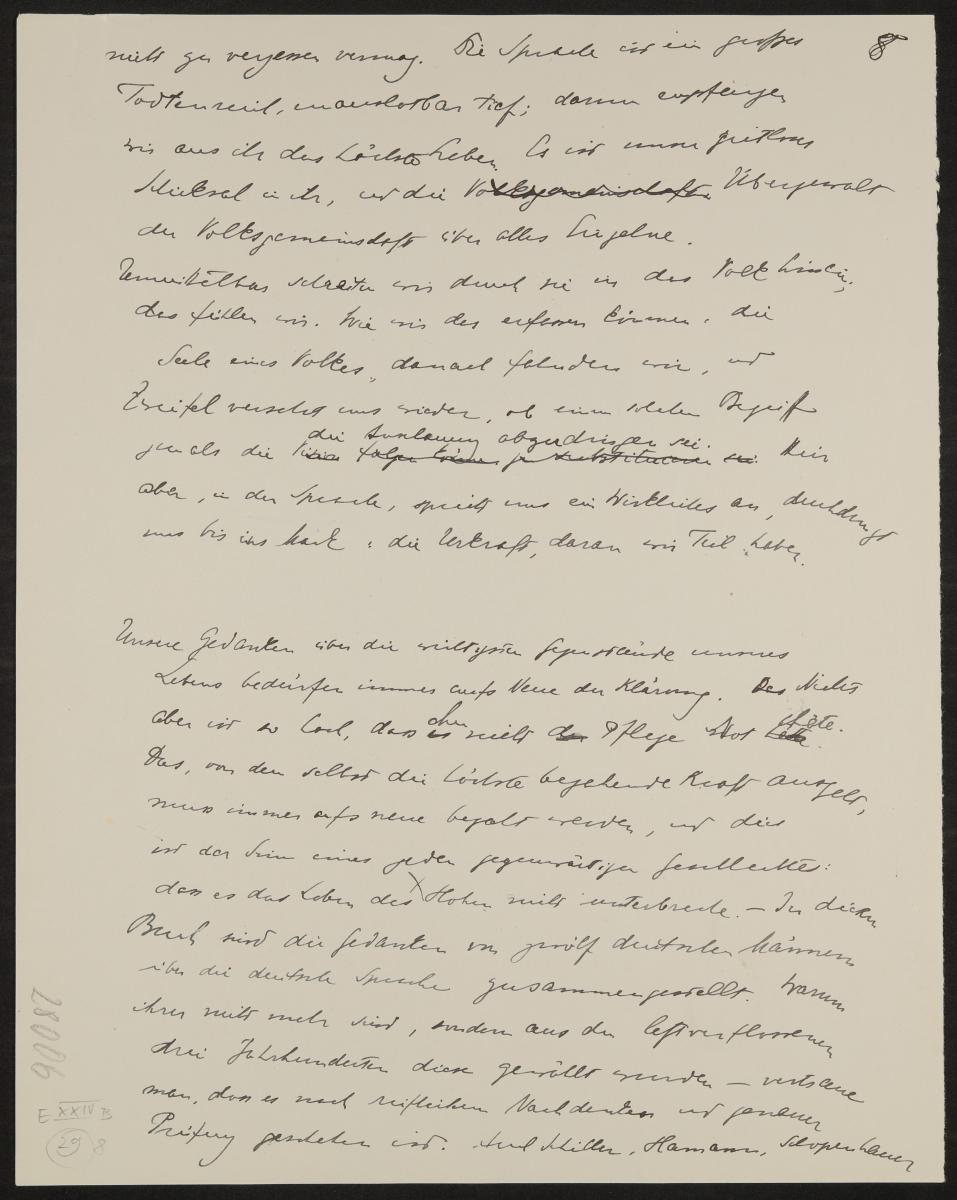 8
nicht zu vergessen vermag. Die Sprache ist ein großes
Todtenreich, unauslotbar tief; darum empfangen
wir aus ihr das höchste Leben. Es ist unser zeitloses
Schicksal in ihr, und die Volksgemeinschaft Übergewalt
der Volksgemeinschaft über alles Einzelne.
Unmittelbar schreiten wir durch sie in das Volk hinein;
das fühlen wir. Wie wir das erfassen können: die
Seele eines Volkes, danach fahnden wir, und
Zweifel versehrt uns wieder, ob einem solchen Begriff
die Anschauung abzudringen sei. Hier
jemals die
aber, in der Sprache, spricht uns ein Wirkliches an, durchdringt
uns bis ins Mark: die Urkraft, daran wir Teil haben.
Unsere Gedanken über die wichtigsten Gegenstände unseres
Lebens bedürfen immer aufs Neue der Klärung. Des Nichts
aber ist so hoch, dass ohne nicht Pflege Not täte.
Das, von dem selbst die höchste begehende Kraft ausgeht,
muss immer aufs neue begabt werden, und dies
ist der Sinn eines jeden gegenwärtigen Geschlechtes:
dass es das Leben des Hohen nicht unterbreche. – In diesem
Buch sind die Gedanken von zwölf deutschen Männern
über die deutsche Sprache zusammengestellt. Warum
ihrer nicht mehr sind, sondern aus den letztverflossenen
drei Jahrhunderten diese gewählt wurden – vertraue
man, dass es nach reiflichem Nachdenken und genauer
Prüfung geschehen ist. Auch Schiller, Hamann, Schopenhauer
28006
E XXIV B
29 8